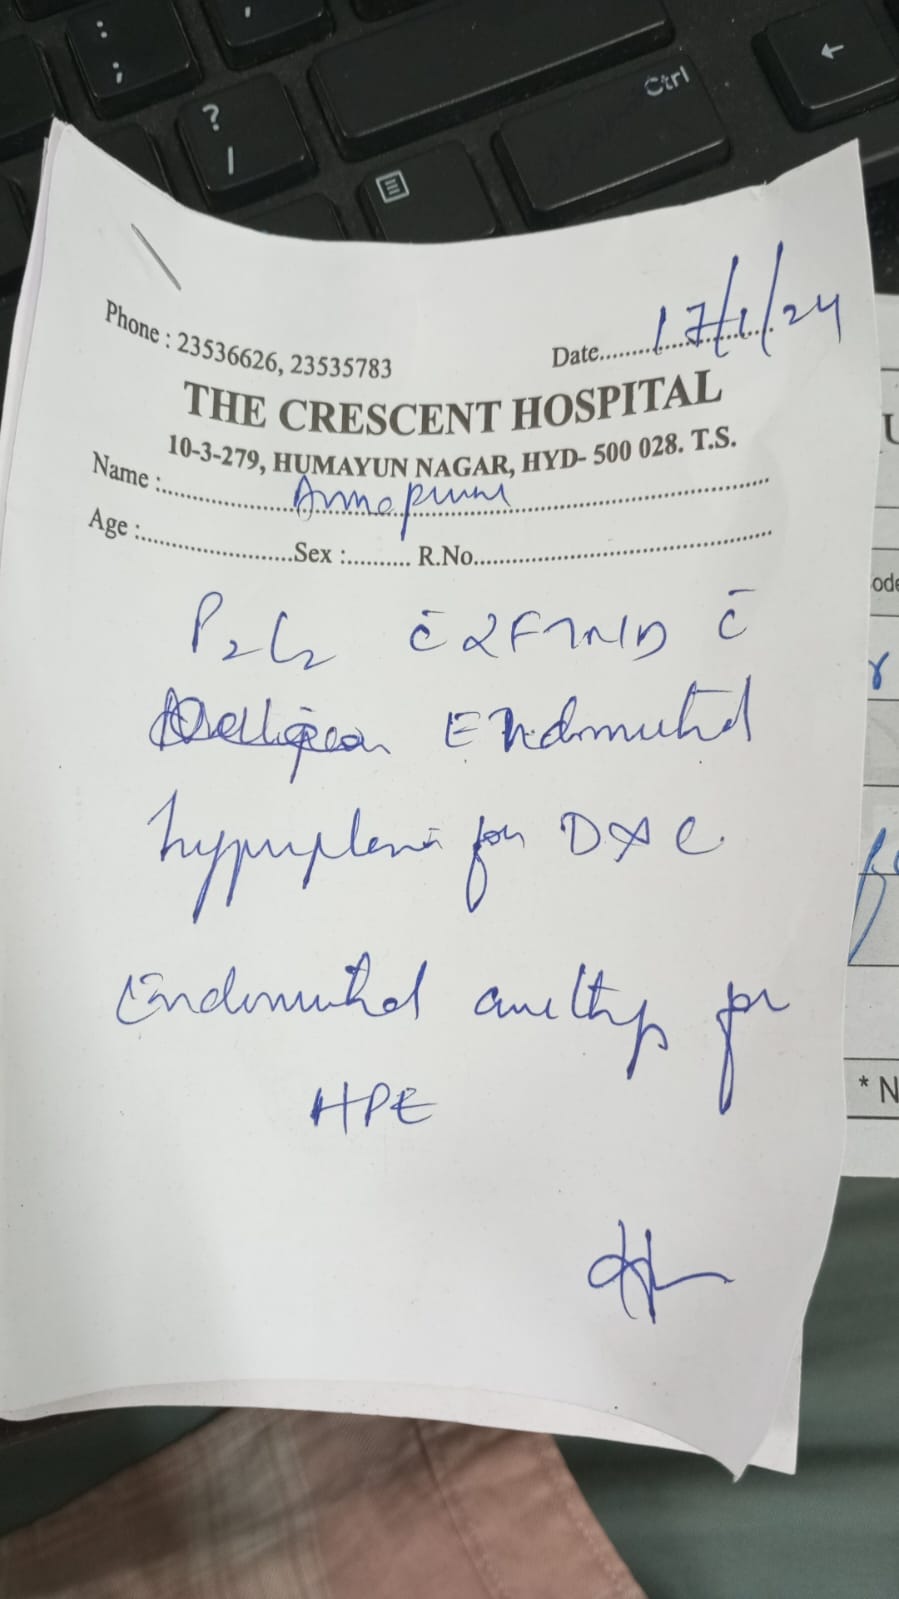 Phone : 23536626, 23535783
Date 17/1/24
THE CRESCENT HOSPITAL
10-3-279, HUMAYUN NAGAR, HYD- 500 028. T.S.
Name :
Age : Sex : R.No.
P2L2 c̄ 2FTND c̄
Endometrial
hyperplasia for D&C
Endometrial curettings for
HPE
Ctrl
* N